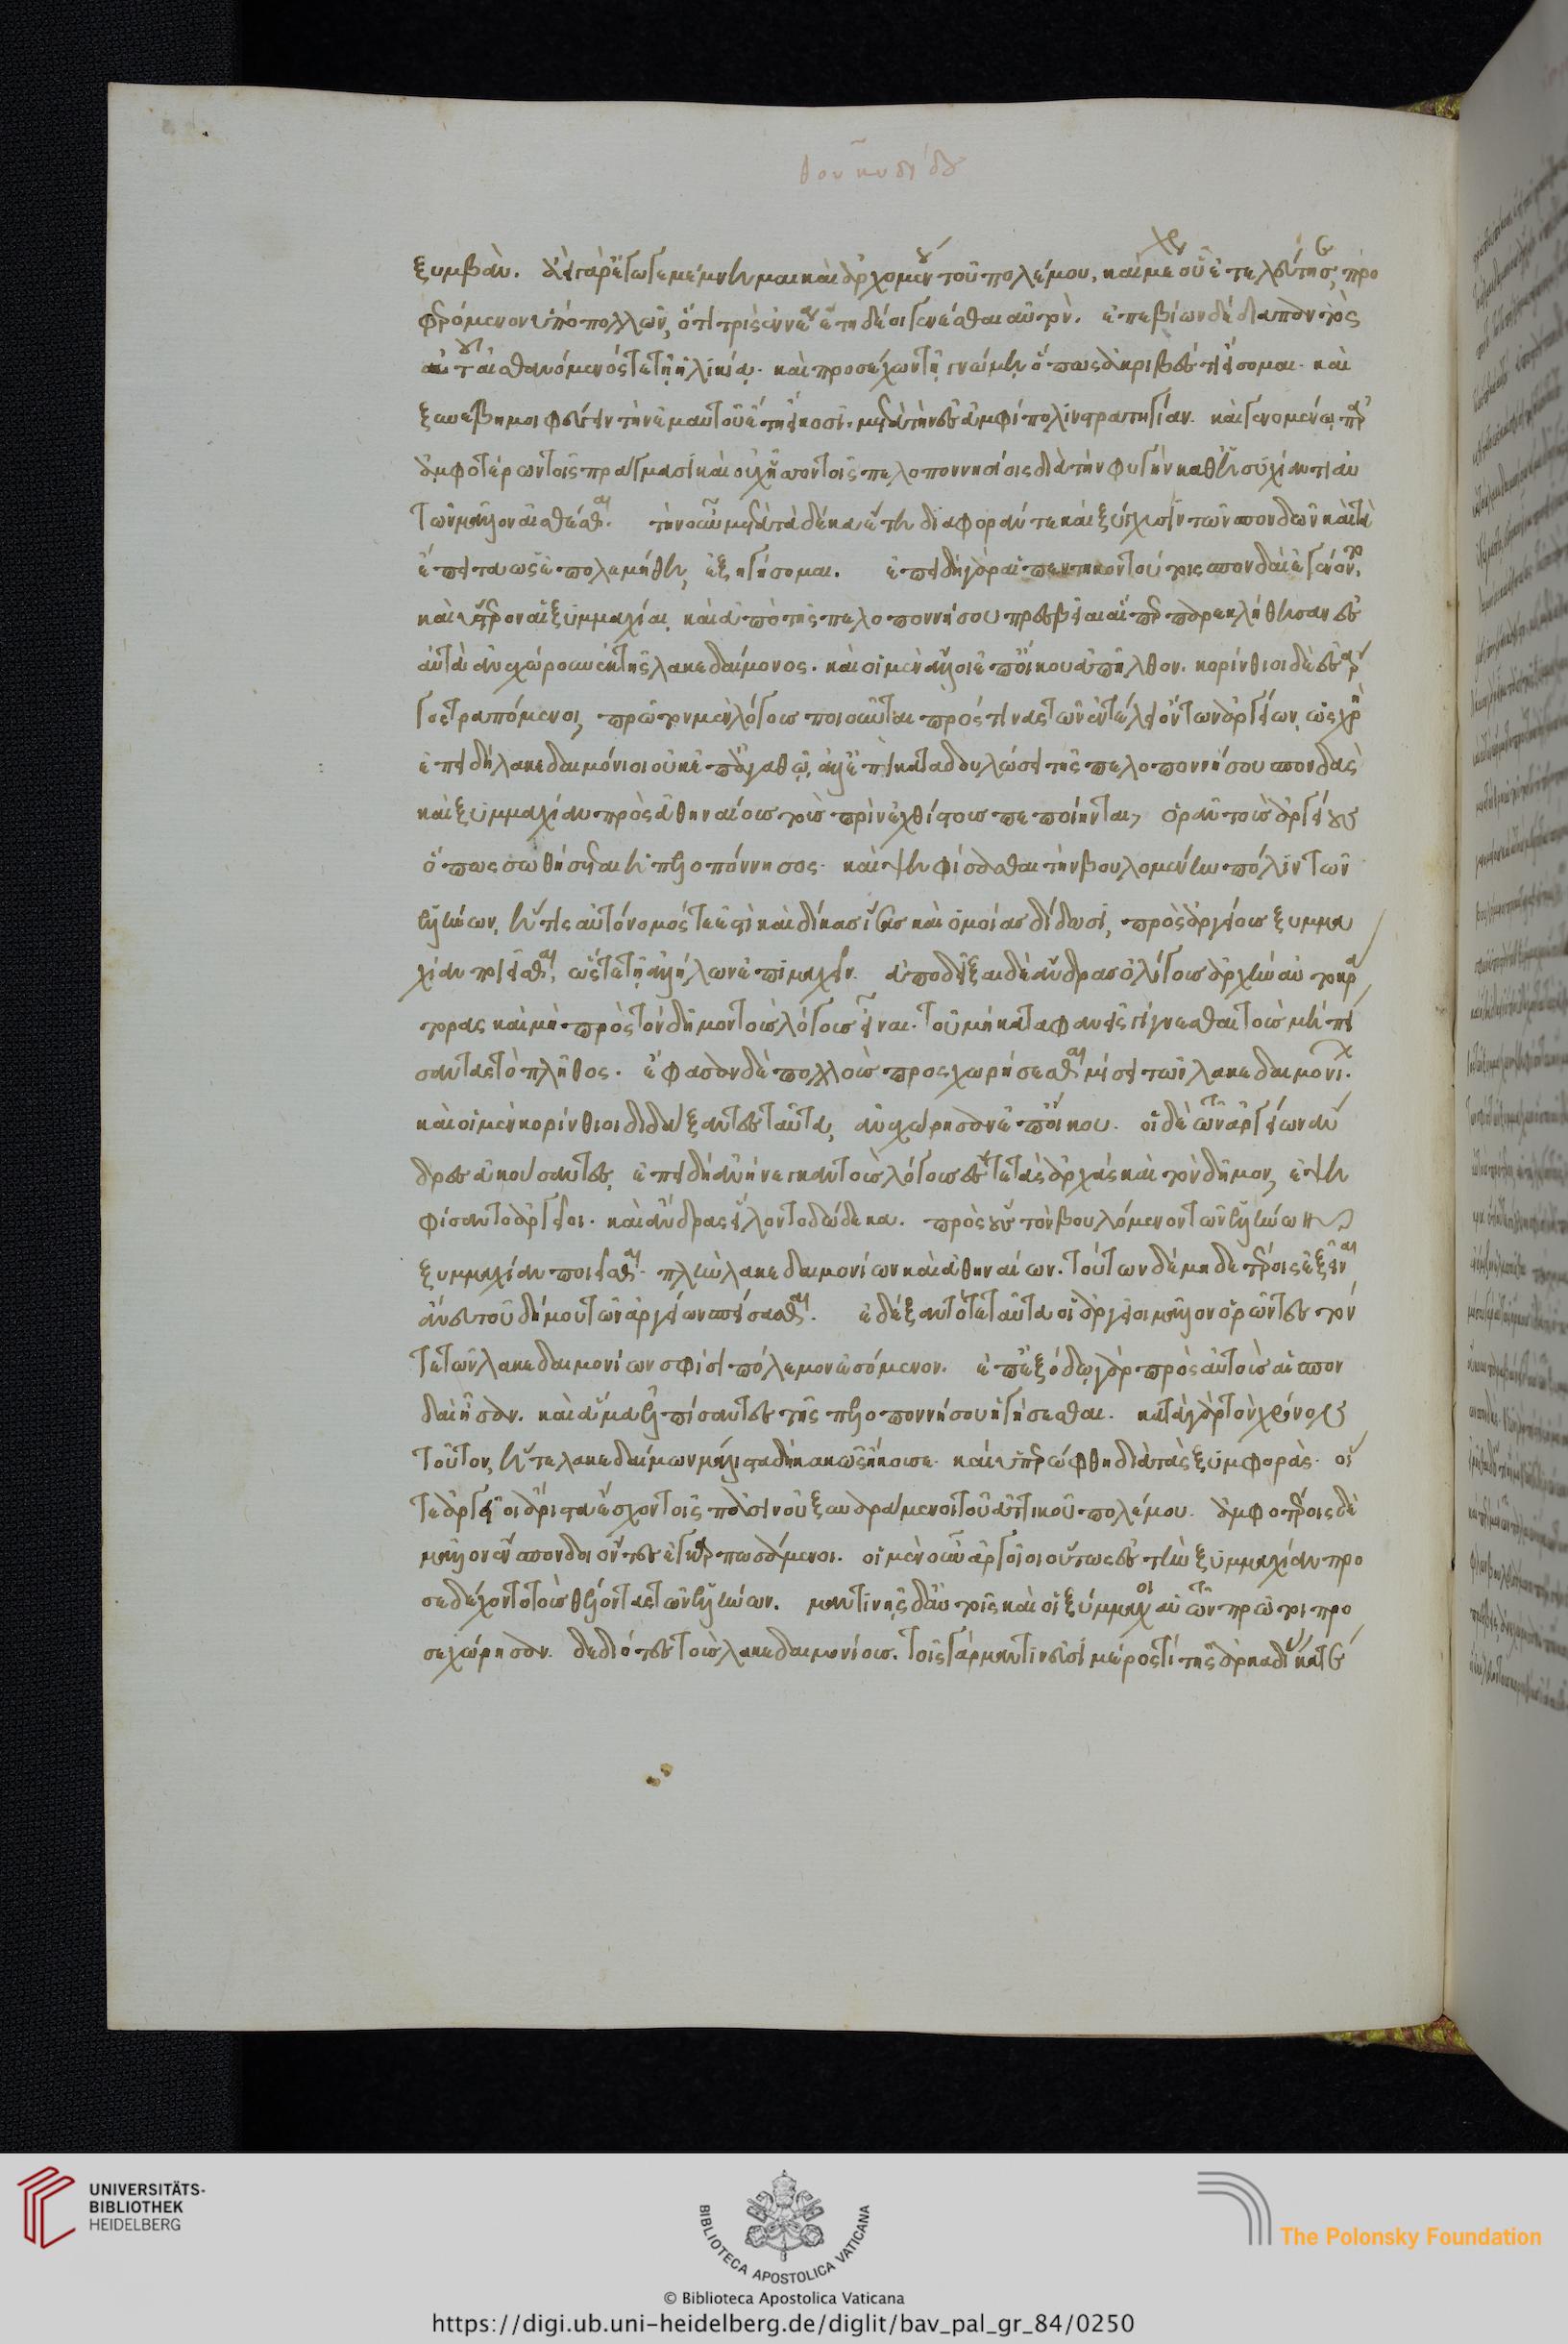 θουκυδίδου
ξυμβάν. ἀεὶ γὰρ ἔγωγε μέμνημαι καὶ ἀρχομένου τοῦ πολέμου, καὶ μέχρι οὗ ἐτελεύτησε, προ
φερόμενον ὑπὸ πολλῶν, ὅτι τρὶς ἐννέα ἔτη δέοι γενέσθαι αὐτόν. ἐπεβίων δὲ διαπαντὸς
αὐτοῦ αἰσθανόμενός τε τῇ ἡλικίᾳ. καὶ προσέχων τῇ γνώμῃ ὅπως ἀκριβές τι εἴσομαι. καὶ
ξυνέβη μοι φεύγειν τὴν ἐμαυτοῦ ἔτη εἴκοσι. μετὰ τὴν ἐς ἀμφίπολιν στρατηγίαν. καὶ γενομένῳ παρ
ἀμφοτέρων τοῖς πράγμασι καὶ οὐχ ἧσσον τοῖς πελοποννησίοις διὰ τὴν φυγὴν καθ' ἡσυχίαν τι αὐ
τῶν μᾶλλον αἰσθέσθαι. τὴν οὖν μετὰ τὰ δέκα ἔτη διαφοράν τε καὶ ξύγχυσιν τῶν σπονδῶν καὶ τὰ
ἔπειτα ὡς ἐπολεμήθη, ἐξηγήσομαι. ἐπειδὴ γὰρ αἱ πεντηκοντούτεις σπονδαὶ ἐγένοντο,
καὶ ὕστερον αἱ ξυμμαχίαι, καὶ ἀπὸ τῆς πελοποννήσου πρεσβεῖαι αἵπερ παρεκλήθησαν ἐς
αὐτὰ ἀνεχώρουν ἐκ τῆς λακεδαίμονος. καὶ οἱ μὲν ἄλλοι ἐπ' οἴκου ἀπῆλθον. κορίνθιοι δὲ ἐς ἄρ
γος τραπόμενοι, πρῶτον μὲν λόγους ποιοῦνται πρός τινας τῶν ἐν τέλει ὄντων ἀργείων, ὡς χρὴ
ἐπειδὴ λακεδαιμόνιοι οὐκ ἐπ' ἀγαθῷ, ἀλλ' ἐπὶ καταδουλώσει τῆς πελοποννήσου σπονδὰς
καὶ ξυμμαχίαν πρὸς ἀθηναίους τοὺς πρὶν ἐχθίστους πεποίηνται, ὁρᾶν τοὺς ἀργείους
ὅπως σωθήσεται ἡ πελοπόννησος. καὶ ψηφίσασθαι τὴν βουλομένην πόλιν τῶν
ἑλλήνων, ἥτις αὐτόνομός τέ ἐστι καὶ δίκας ἴσας καὶ ὁμοίας δίδωσι, πρὸς ἀργείους ξυμμα
χίαν ποιεῖσθαι, ὥστε τῇ ἀλλήλων ἐπιμαχεῖν. ἀποδεῖξαι δὲ ἄνδρας ὀλίγους ἀρχὴν αὐτοκρά
τορας καὶ μὴ πρὸς τὸν δῆμον τοὺς λόγους εἶναι. τοῦ μὴ καταφανεῖς γίγνεσθαι τοὺς μὴ πεί
σαντας τὸ πλῆθος. ἔφασαν δὲ πολλοὺς προσχωρήσεσθαι μίσει τῶν λακεδαιμονίων.
καὶ οἱ μὲν κορίνθιοι διδάξαντες ταῦτα, ἀνεχώρησαν ἐπ' οἴκου. οἱ δὲ τῶν ἀργείων ἄν
δρες ἀκούσαντες, ἐπειδὴ ἀνήνεγκαν τοὺς λόγους ἔς τε τὰς ἀρχὰς καὶ τὸν δῆμον, ἐψη
φίσαντο ἀργεῖοι. καὶ ἄνδρας εἵλοντο δώδεκα. πρὸς οὓς τὸν βουλόμενον τῶν ἑλλήνων
ξυμμαχίαν ποιεῖσθαι. πλὴν λακεδαιμονίων καὶ ἀθηναίων. τούτων δὲ μηδετέροις ἐξεῖναι
ἄνευ τοῦ δήμου τῶν ἀργείων σπείσασθαι. ἐδέξαντό τε ταῦτα οἱ ἀργεῖοι μᾶλλον ὁρῶντες τόν
τε τῶν λακεδαιμονίων σφίσι πόλεμον ἐσόμενον. ἐπ' ἐξόδῳ γὰρ πρὸς αὐτοὺς αἱ σπον
δαὶ ἦσαν. καὶ ἅμα ἐλπίσαντες τῆς πελοποννήσου ἡγήσεσθαι. κατὰ γὰρ τὸν χρόνον
τοῦτον, ἥ τε λακεδαίμων μάλιστα δὴ κακῶς ἤκουσε. καὶ ὑπερώφθη διὰ τὰς ξυμφοράς. οἵ
τε ἀργεῖοι ἄριστα ἔσχον τοῖς πᾶσιν οὐ ξυναράμενοι τοῦ ἀττικοῦ πολέμου. ἀμφοτέροις δὲ
μᾶλλον ἔνσπονδοι ὄντες ἐγκαρπωσάμενοι. οἱ μὲν οὖν ἀργεῖοι οὕτως ἐς τὴν ξυμμαχίαν προ
σεδέχοντο τοὺς θέλοντας τῶν ἑλλήνων. μαντινῆς δ' αὐτοῖς καὶ οἱ ξύμμαχοι αὐτῶν πρῶτοι προ
σεχώρησαν. δεδιότες τοὺς λακεδαιμονίους. τοῖς γὰρ μαντινεῦσι μέρος τι τῆς ἀρκαδίας κατέ
UNIVERSITÄTS-
BIBLIOTHEK
HEIDELBERG
BIBLIOTECA APOSTOLICA VATICANA
The Polonsky Foundation
© Biblioteca Apostolica Vaticana
https://digi.ub.uni-heidelberg.de/diglit/bav_pal_gr_84/0250